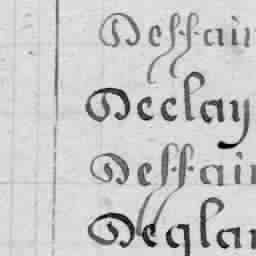 Deffain
Declay
Deffain
Deglan